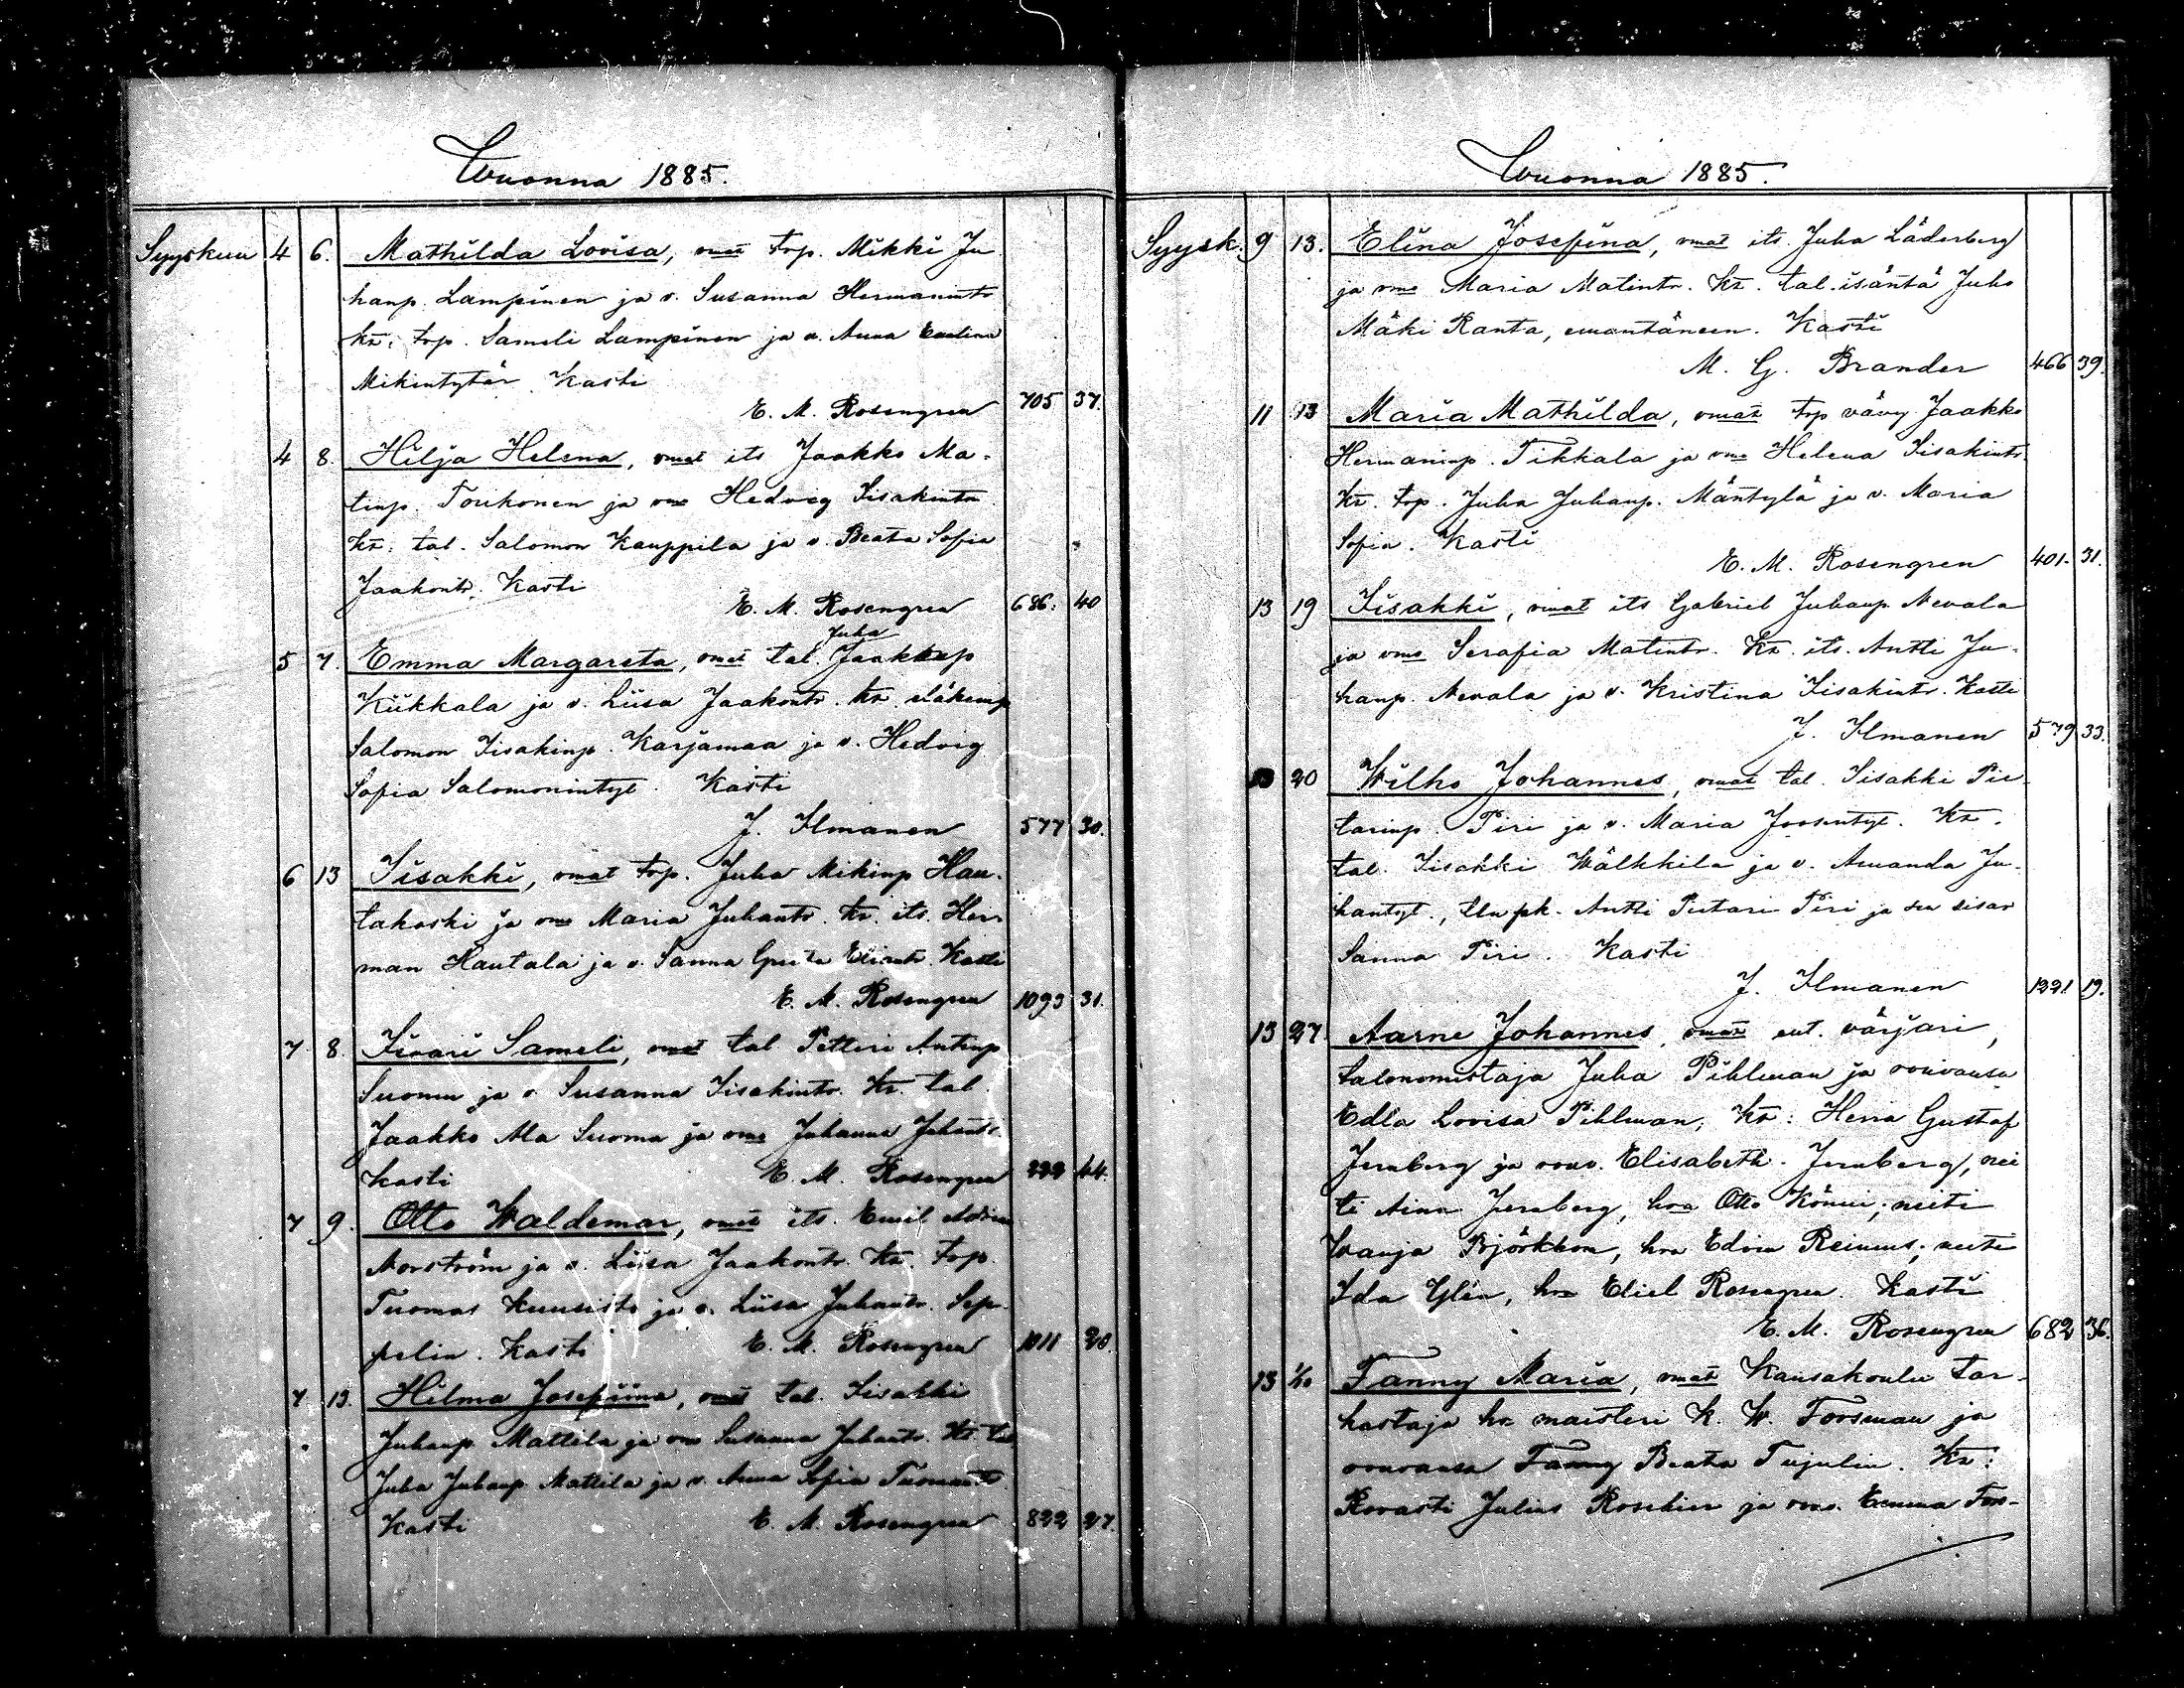 Wuonna 1885.
Syyskuu 4 6. Mathilda Lovisa, vmat trp. Mikki Ju
hanp. Lampinen ja v. Susanna Hermanintr
kr. trp. Sameli Lampinen ja v. Anna Eveliina
Mikintytär. Kasti
E. M. Rosengren 705 37.
4 8. Hilja Helena, vmat its Jaakko Ma-
tinp. Toukonen ja vmo Hedvig Iisakintr
kr. tal. Salomon Kauppila ja v. Beata Sofia
Jaakontr. Kasti
E. M. Rosengren 686. 40
Juha
5 7. Emma Margareta, vmat tal. Jaakkop
Kiikkala ja v. Liisa Jaakontr. kr.
Salomon Iisakinp. Karjamaa ja v. Hedvig
Sofia Salomonintyt. Kasti
J. Ilmanen 577 30.
6 13 Iisakki, vmat trp. Juha Mikinp Hau-
takoski ja vmo Maria Juhantr. kr. its. Her-
man Hautala ja v. Sanna Greeta Kasti
E. M. Rosengren 1093 31.
7 8. Iivari Sameli, vmat tal Petteri Antinp
Suomu ja v. Susanna Iisakintr. kr. tal.
Jaakko Ala Suomu ja vmo Johanna Juhantr.
Kasti E. M. Rosengren 222 44.
7 9. Otto Waldemar, vmat its. Emil
Norström ja v. Liisa Jaakontr. Kr. trp.
Tuomas Kuusisto ja v. Liisa Juhantr. Sep-
pelin. Kasti E. M. Rosengren 1011 20.
7 13. Hilma Josefiina, vmat tal. Iisakki
Juhanp. Mattila ja vmo Susanna Juhantr. kr. tal
Juha Juhanp Mattila ja v. Anna Sofia Tuomantr
Kasti E. M. Rosengren 822 27.
Wuonna 1885.
Syysk. 9 13. Elina Josefina, vmat its. Juha Läderberg
ja vmo Maria Matintr. Kr. tal. isäntä Juho
Mäki Ranta, emäntäneen. Kasti
M. G. Brander 466 39.
11 13 Maria Mathilda, vmat trp vävy Jaakko
Hermaninp. Tikkala ja vmo Helena Iisakintr.
Kr. trp. Juha Juhanp. Mäntylä ja v. Maria
Sofia. Kasti
E. M. Rosengren 401. 31.
13 19 Iisakki, vmat its Gabriel Juhanp. Nevala
ja vmo Serafia Matintr. Kr. its. Antti Ju-
hanp. Nevala ja v. Kristina Iisakintr. Kasti
J. Ilmanen 579 33.
13 20 Wilho Johannes, vmat tal. Iisakki Pie-
tarinp. Piri ja v. Maria Joosentyt. Kr.
tal. Iisakki Wälkkilä ja v. Amanda Ju-
hantyt., tlu pk. Antti Pietari Piri ja sen sisar
Sanna Piri. Kasti
J. Ilmanen 1221 19.
13 27 Aarne Johannes, vmat ent. värjäri,
talonomistaja Juha Pihlman ja rouvansa
Edla Lovisa Pihlman; Kr: Herra Gustaf
Jernberg ja rouv. Elisabeth Jernberg, nei
ti Aina Jernberg, hra Otto Könni; neiti
Wanja Björkbom, hra Edvin Reinius; neiti
Ida Ylén, hra Eliel Rosengren. Kasti
E. M. Rosengren 682 36.
13 1/10 Fanny Maria, vmat Kansakoulu tar-
kastaja hr. maisteri K. W. Forsman ja
rouvansa Fanny Beata Tujulin. Kr:
Rovasti Julius Roschier ja rouv. Emma Fors-